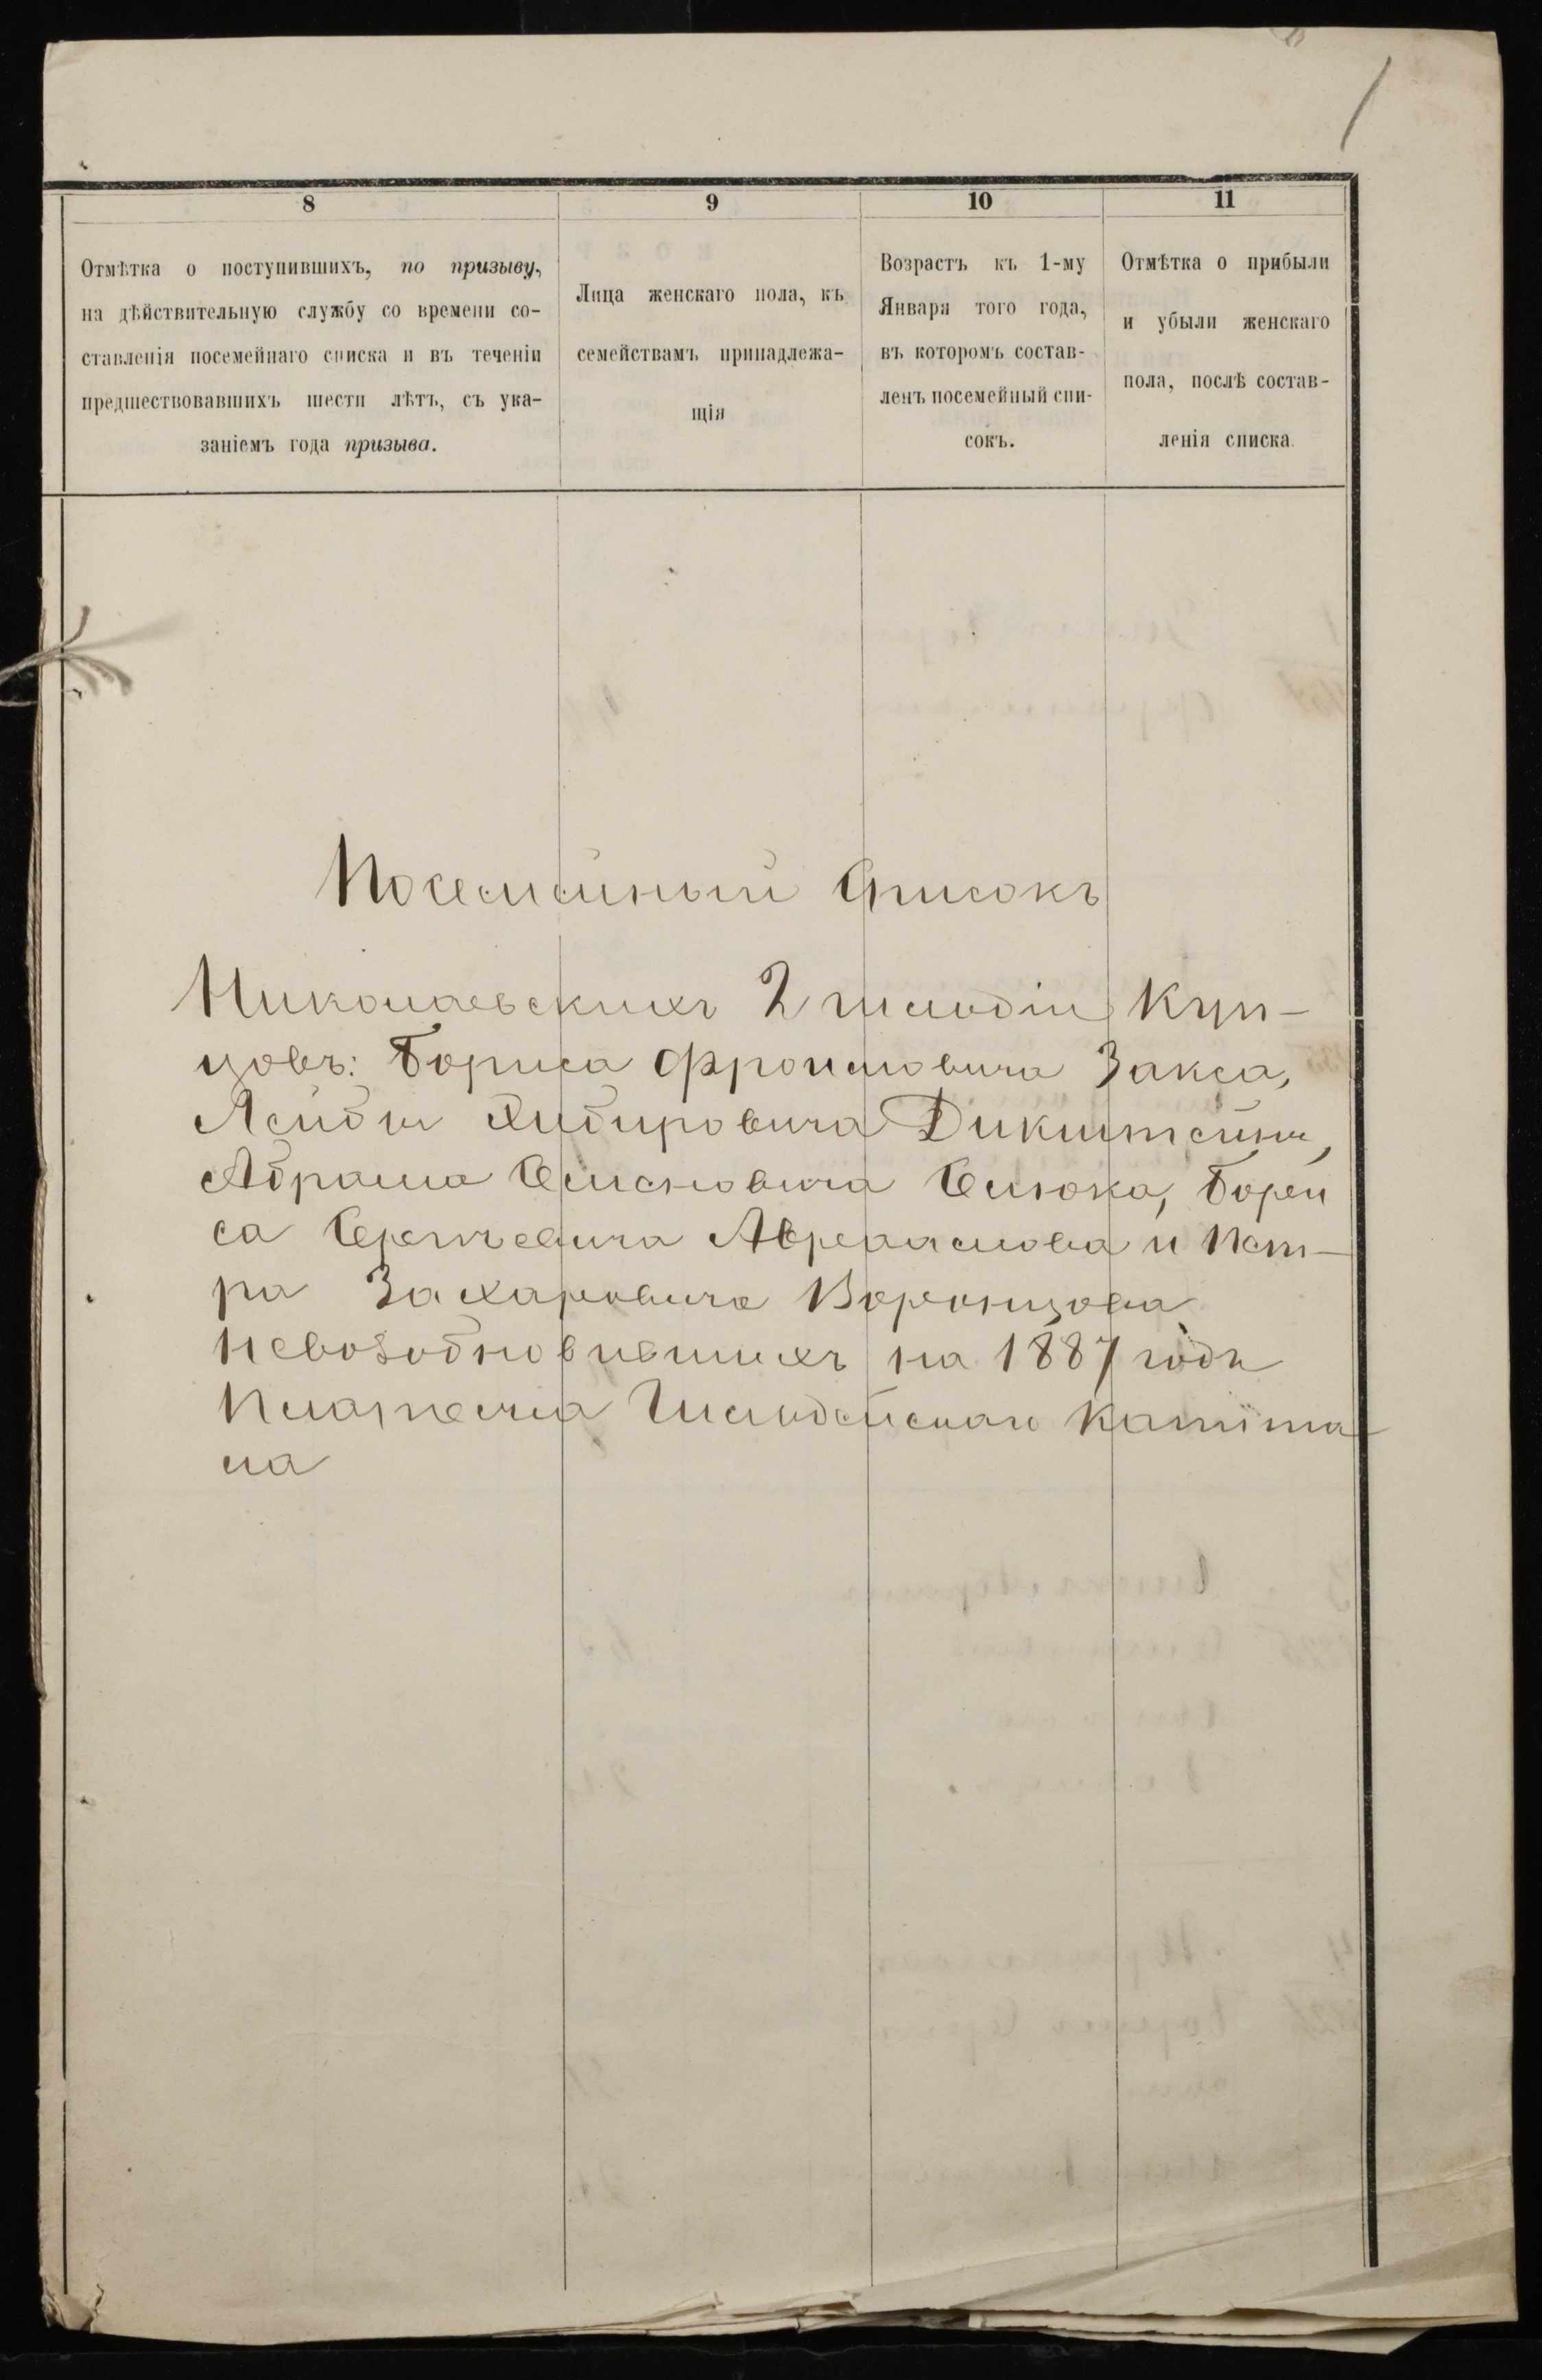 1
8
9
10
11
Отмѣтка о поступившихъ, по призыву,
на дѣйствительную службу со времени со-
ставленія посемейнаго списка и въ теченіи
предшествовавшихъ шести лѣтъ, съ ука-
заніемъ года призыва.
Лица женскаго пола, къ
семействамъ принадлежа-
щія
Возрастъ къ 1-му
Января того года,
въ которомъ состав-
ленъ посемейный спи-
сокъ.
Отмѣтка о прибыли
и убыли женскаго
пола, послѣ состав-
ленія списка.
Посемейный Списокъ
Николаевскихъ 2 гильдіи Куп-
цовъ: Бориса Фроимовича Закса,
Дикштейна,
Абрама Бенюка, Борей
са и Пет-
ра Захаровича Воронцова
невозобновившихъ на 1887 годъ
Платежа Гильдейскаго Капита-
ла